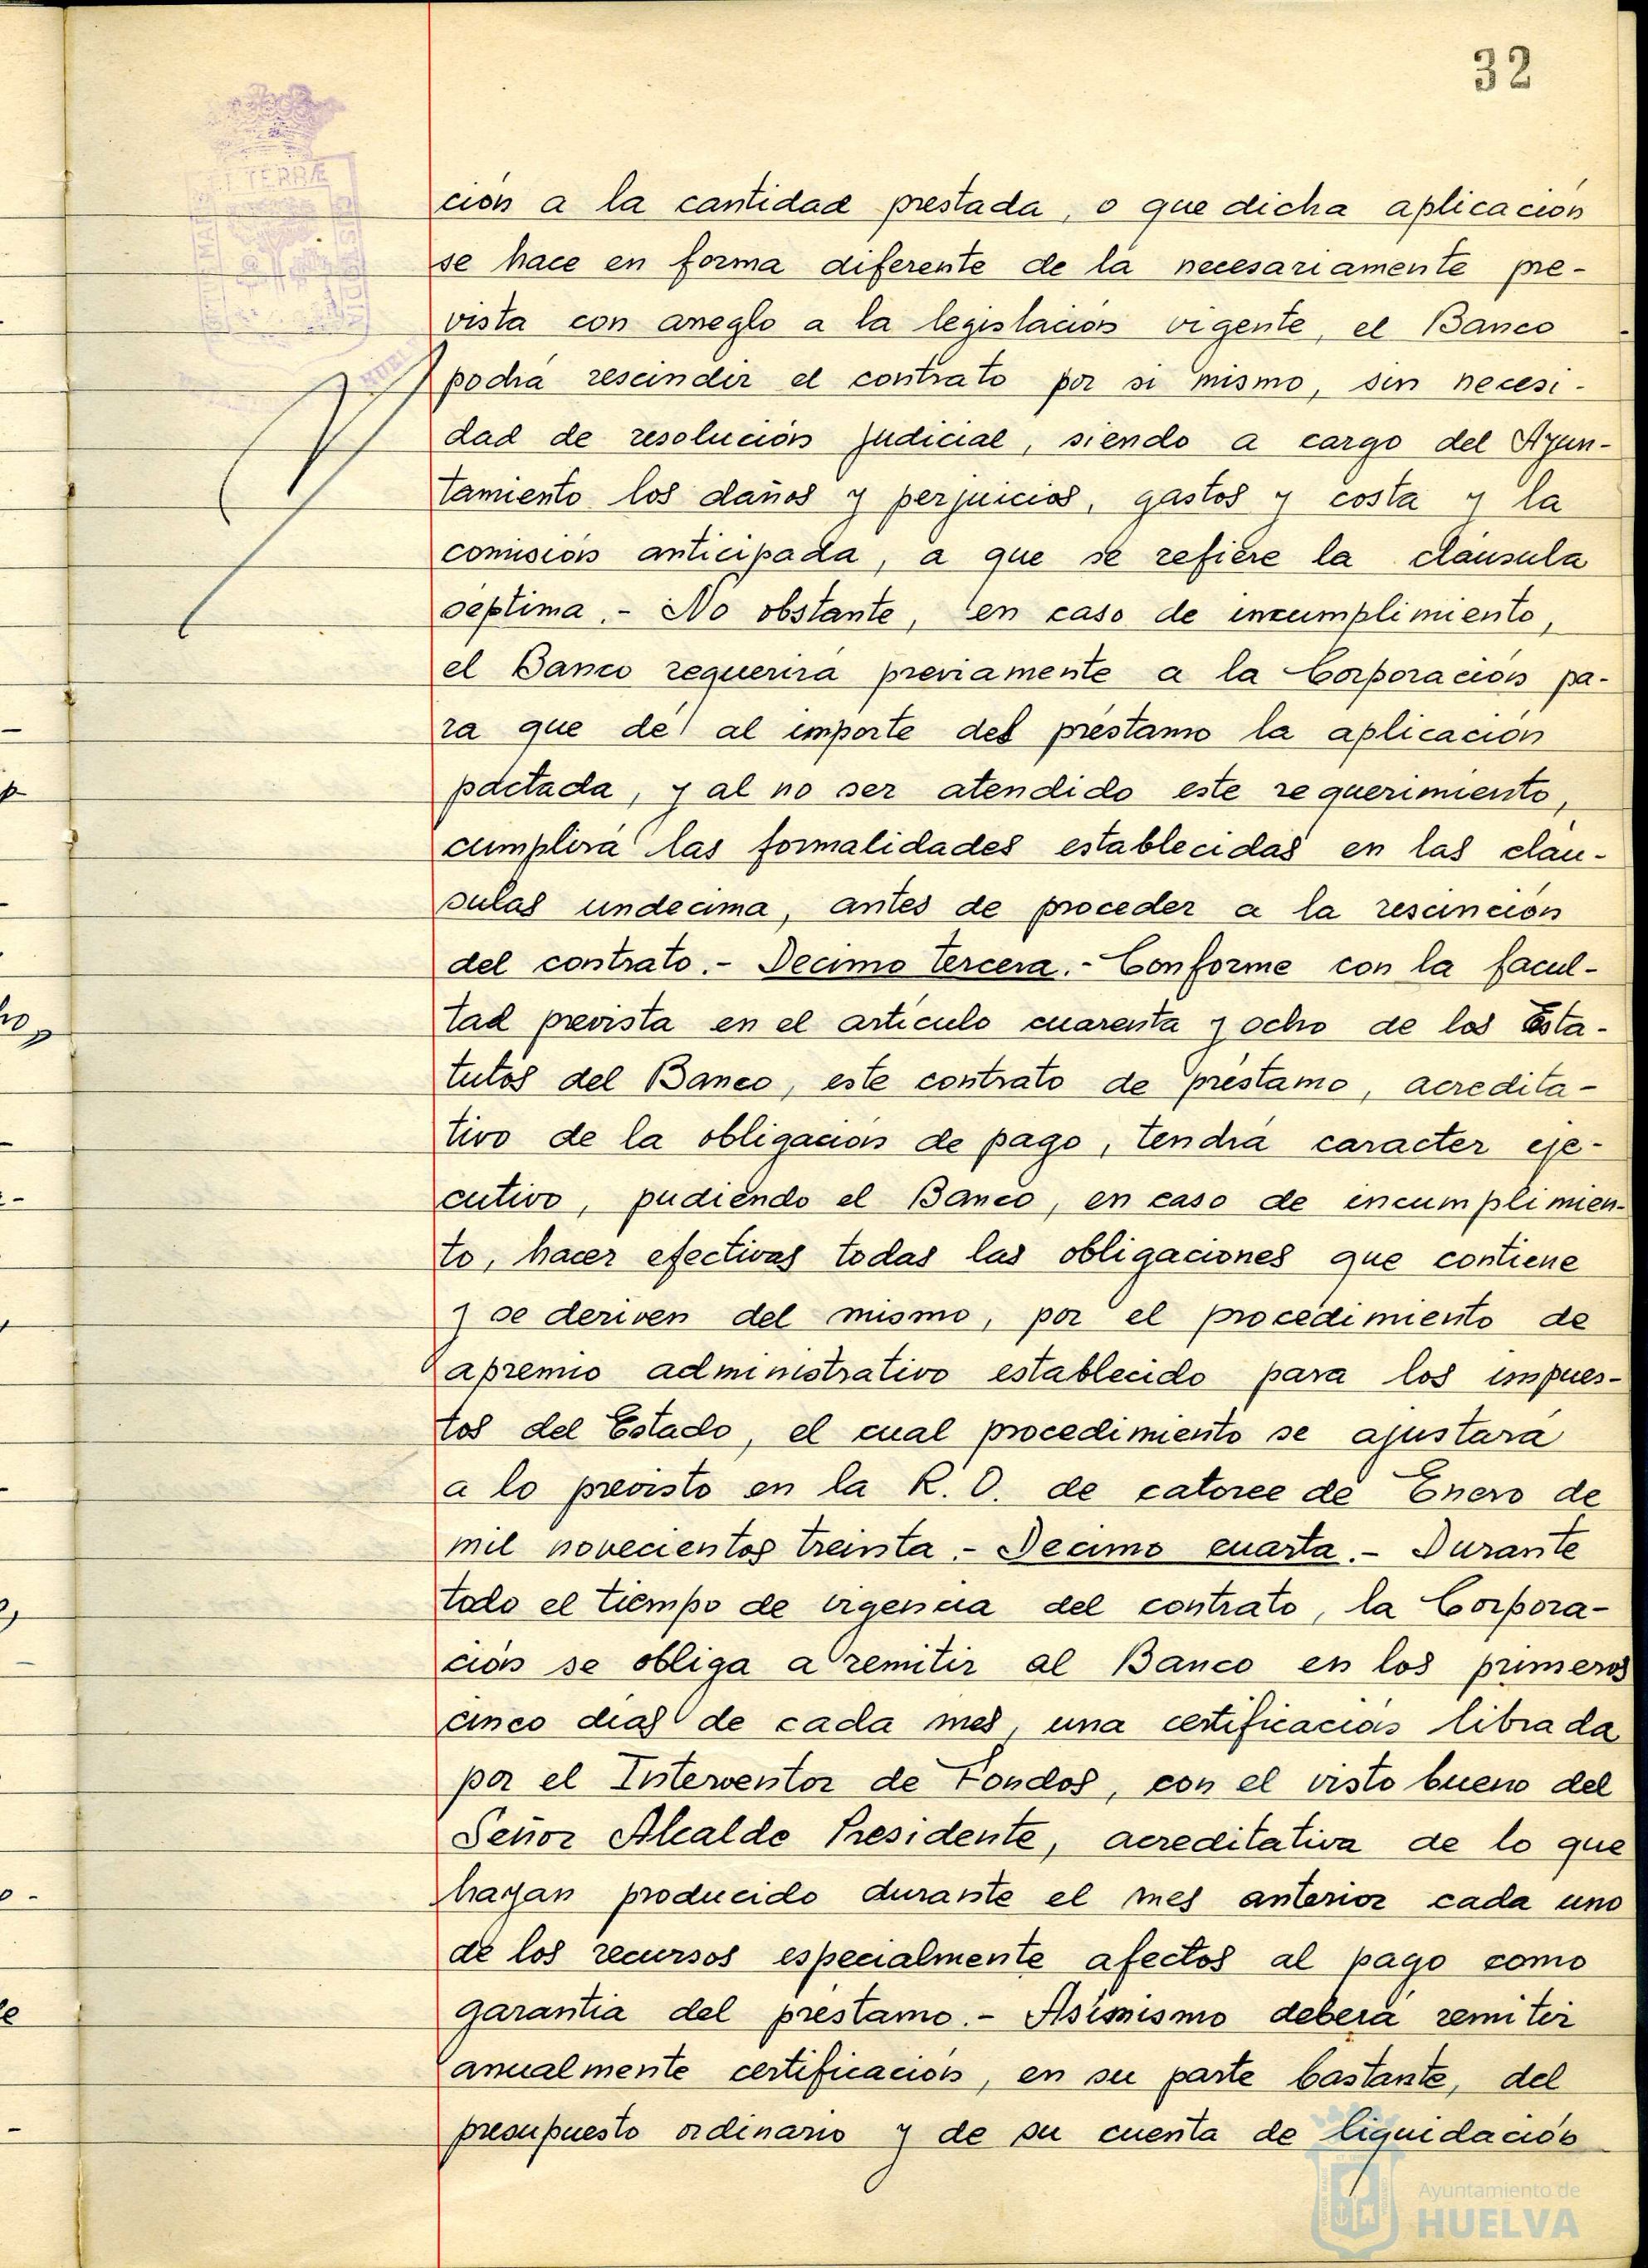 32
ET TERRÆ
CUSTODIA
ción a la cantidad prestada, o que dicha aplicación
se hace en forma diferente de la necesariamente pre-
vista con arreglo a la legislación vigente, el Banco
podrá rescindir el contrato por si mismo, sin necesi-
dad de resolución judicial, siendo a cargo del Ayun-
tamiento los daños y perjuicios, gastos y costa y la
comisión anticipada, a que se refiere la cláusula
séptima.- No obstante, en caso de incumplimiento,
el Banco requerirá previamente a la Corporación pa-
ra que dé al importe del préstamo la aplicación
pactada, y al no ser atendido este requerimiento,
cumplirá las formalidades establecidas en las cláu-
sulas undecima, antes de proceder a la rescinción
del contrato.- Decimo tercera.- Conforme con la facul-
tad prevista en el artículo cuarenta y ocho de los Esta-
tutos del Banco, este contrato de préstamo, acredita-
tivo de la obligación de pago, tendrá caracter eje-
cutivo, pudiendo el Banco, en caso de incumplimien-
to, hacer efectivas todas las obligaciones que contiene
y se deriven del mismo, por el procedimiento de
apremio administrativo establecido para los impues-
tos del Estado, el cual procedimiento se ajustará
a lo previsto en la R. O. de catorce de Enero de
mil novecientos treinta.- Decimo cuarta.- Durante
todo el tiempo de vigencia del contrato, la Corpora-
ción se obliga a remitir al Banco en los primeros
cinco días de cada mes, una certificación librada
por el Interventor de Fondos, con el visto bueno del
Señor Alcalde Presidente, acreditativa de lo que
hayan producido durante el mes anterior cada uno
de los recursos especialmente afectos al pago como
garantia del préstamo.- Asimismo deberá remitir
anualmente certificación, en su parte bastante, del
presupuesto ordinario y de su cuenta de liquidación
Ayuntamiento de
HUELVA